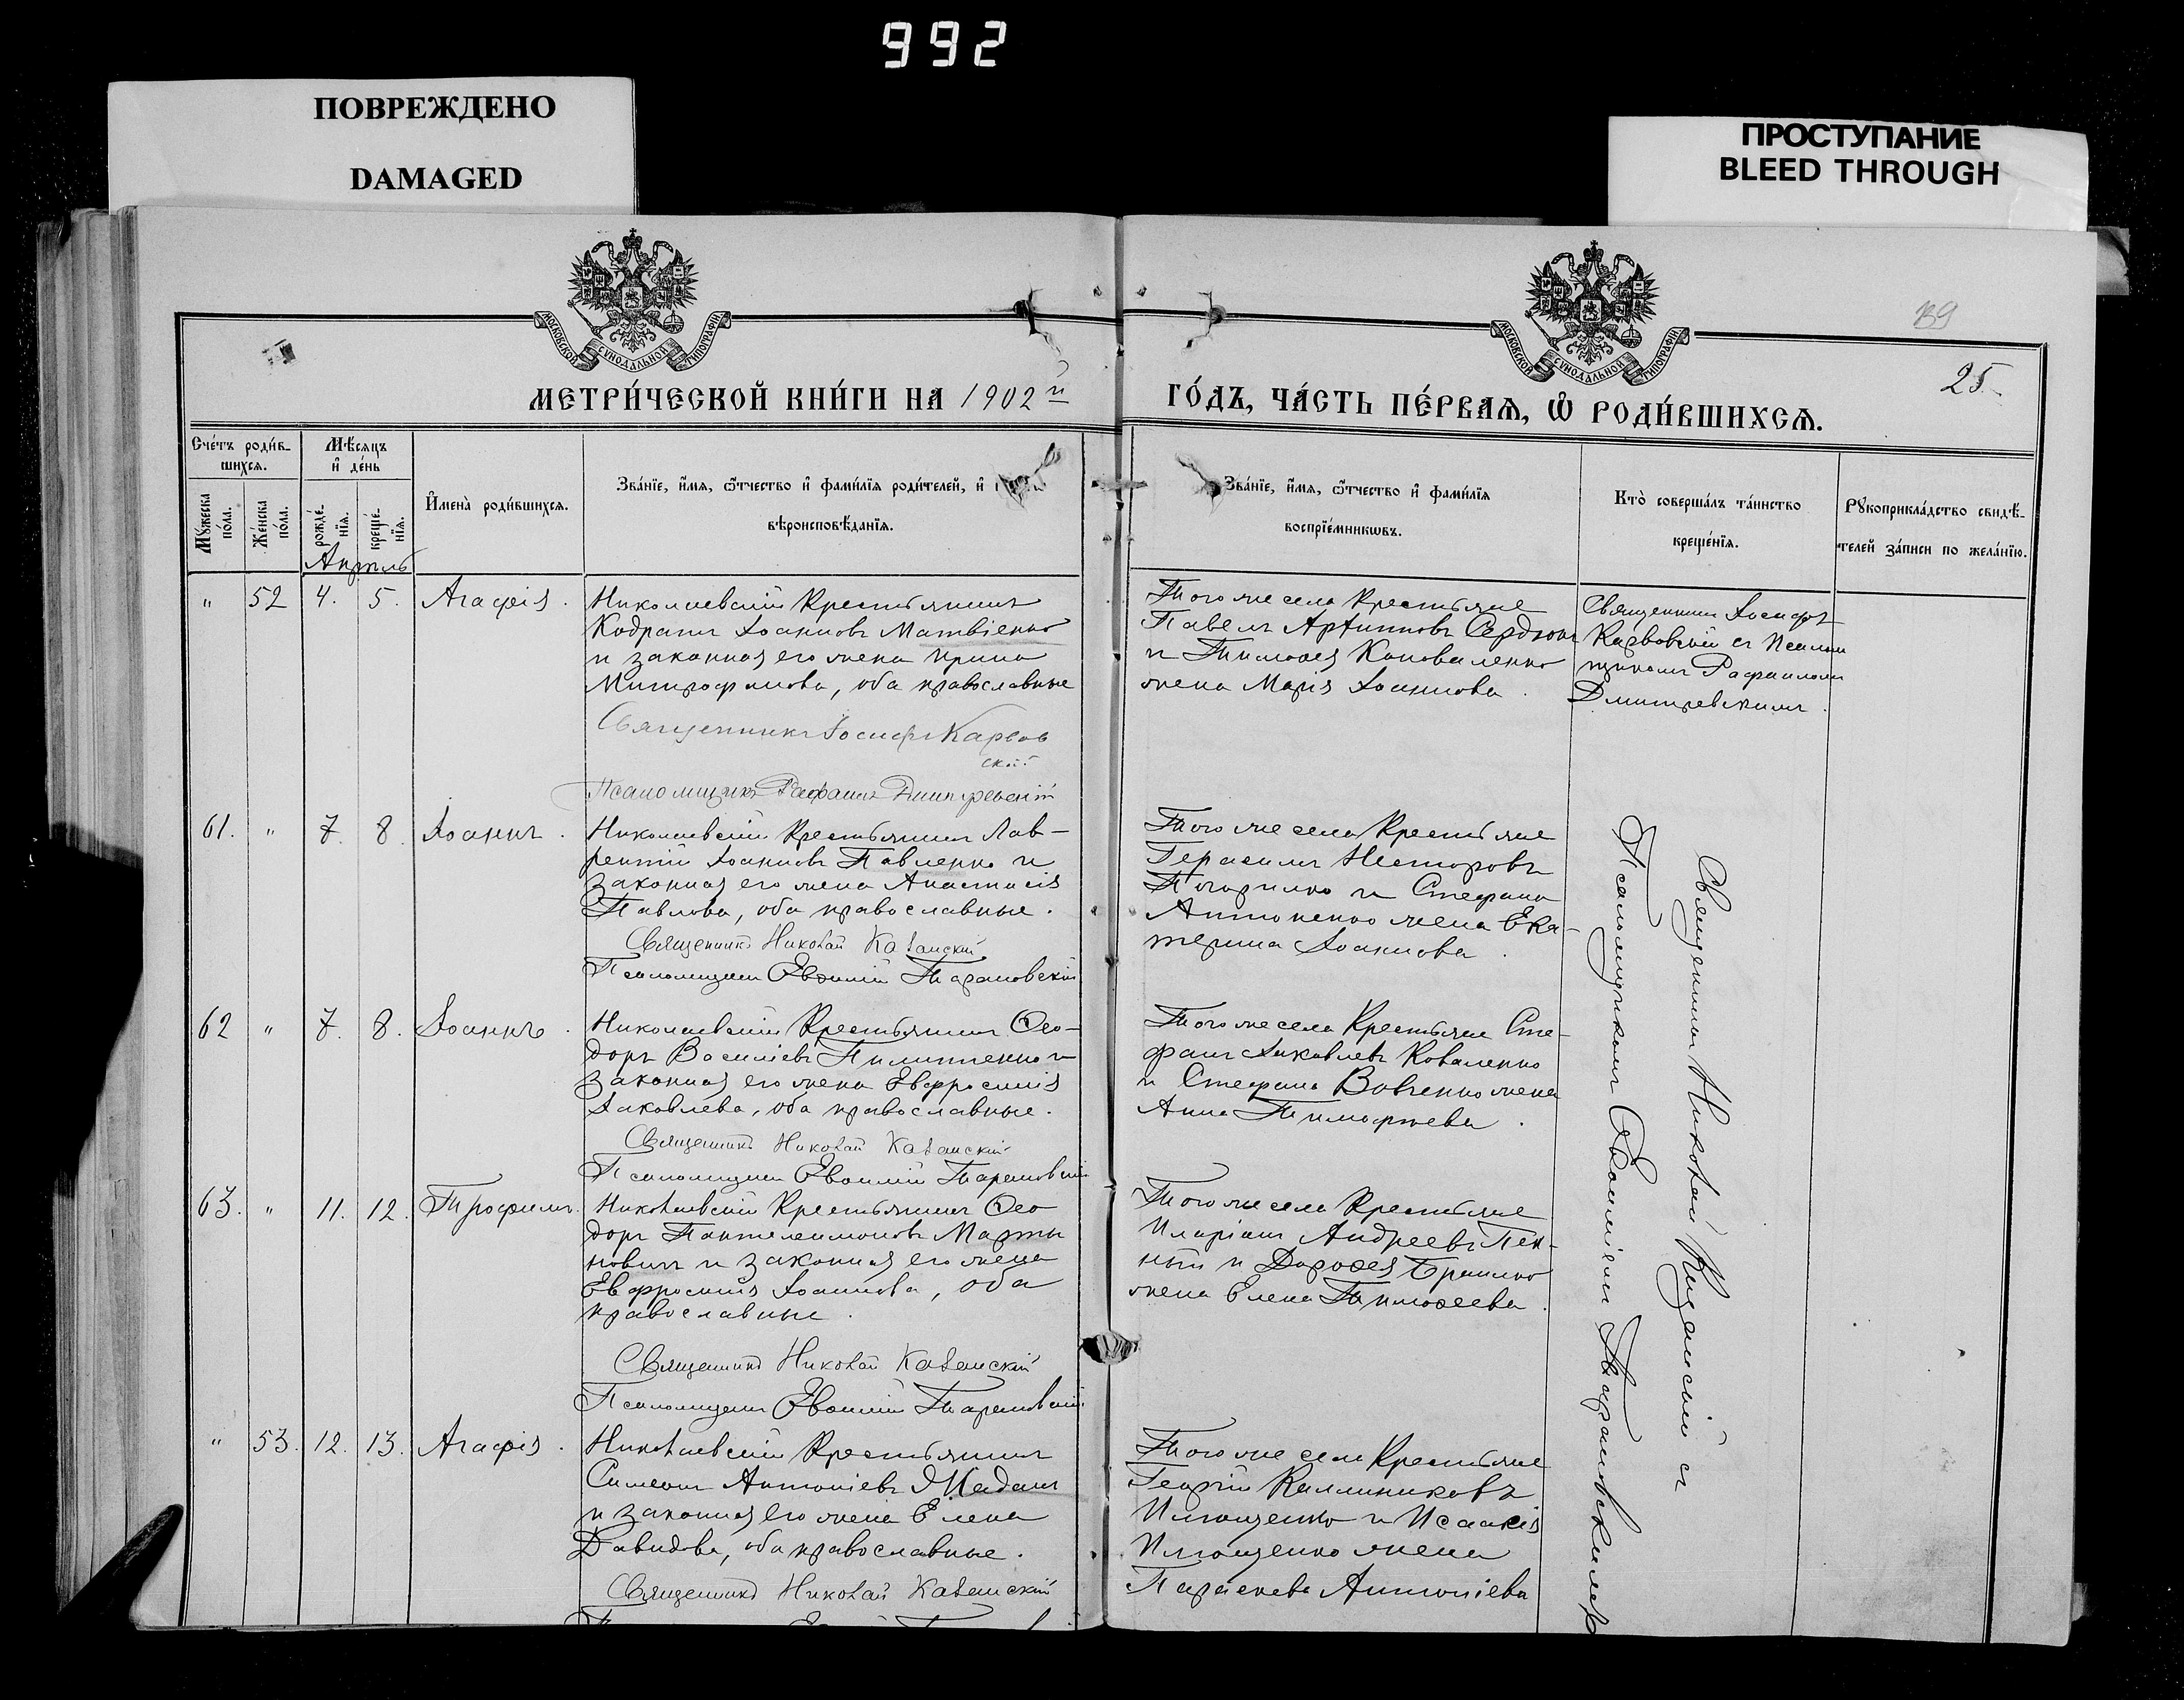 992
ПОВРЕЖДЕНО
DAMAGED
ПРОСТУПАНИЕ
BLEED THROUGH
МОСКОВСКОЙ СѴНОДАЛЬНОЙ ТИПОГРАФІИ
МОСКОВСКОЙ СѴНОДАЛЬНОЙ ТИПОГРАФІИ
25.
МЕТРИ́ЧЕСКОЙ КНИ́ГИ НА 1902й
ГО́ДЪ, ЧА́СТЬ ПЕ́РВАѦ, Ѡ РОДИ́ВШИХСѦ.
Сче́тъ роди́в-
шихсѧ.
Мѣ́сѧцъ
и҆ де́нь
Мꙋ́жеска
по́ла.
Же́нска
по́ла.
рожде́-
нїѧ.
креще́-
нїѧ.
И҆мена̀ роди́вшихсѧ.
Зва́нїе, и҆́мѧ, ѻ҆́тчество и҆ фами́лїѧ роди́телей, и҆
вѣроисповѣ́данїѧ.
Зва́нїе, и҆́мѧ, ѻ҆́тчество и҆ фами́лїѧ
воспрїе́мникѡвъ.
Кто̀ соверша́лъ та́инство
креще́нїѧ.
Рꙋкоприкла́дство свидѣ́-
телей за́писи по жела́нїю.
Апрѣль
" 52 4. 5. Агафія.
Николаевскій Крестьянинъ
Кодратъ Іоанновъ Матвіенко
и законная его жена Ирина
Митрофанова, оба православные
Священникъ Іосифъ Карвов
скій
Псаломщикъ Рафаилъ Дмитревскій
Того же села Крестьяне
Павелъ Архиповъ Сердюкъ
и Тимофея Коноваленко
жена Марія Іоаннова.
Священникъ Іосифъ
Карвовскій съ Псалом
щикомъ Рафаиломъ
Дмитревскимъ.
61. " 7. 8. Іоаннъ.
Николаевскій Крестьянинъ Лав-
рентій Іоанновъ Павленко и
законная его жена Анастасія
Павлова, оба православные.
Священникъ Николай Казанскій
Псаломщикъ Евѳимій Тарановскій
Того же села Крестьяне
Герасимъ Несторовъ
Погорилко и Стефана
Антоненко жена Ека-
терина Іоаннова.
62 " 7. 8. Іоаннъ.
Николаевскій Крестьянинъ Ѳео-
доръ Василіевъ Пилипенко и
законная его жена Евфросинія
Іаковлева, оба православные.
Священникъ Николай Казанскій
Псаломщикъ Евѳимій Тарановскій
Того же села Крестьяне Сте-
фанъ Іаковлевъ Коваленко
и Стефана Вовченко жена
Анна Тимофеева.
63. " 11. 12. Трофимъ.
Николаевскій Крестьянинъ Ѳео
доръ Пантелеимоновъ Марты
новичъ и законная его жена
Евфросинія Іоаннова, оба
православные.
Священникъ Николай Казанскій
Псаломщикъ Евѳимій Тарановскій
Того же села Крестьяне
Иларіонъ Андреевъ Пен-
ный и Дороѳея Браилко
жена Елена Тимоѳеева.
" 53. 12. 13. Агафія.
Николаевскій Крестьянинъ
Симеонъ Антоніевъ Жаданъ
и законная его жена Елена
Давидова, оба православные.
Священникъ Николай Казанскій
Того же села Крестьяне
Георгій Каллиниковъ
Ильющенко и Исаакія
Ильющенко жена
Параскева Антоніева
Священникъ Николай Казанскій съ
Псаломщикомъ Евѳиміемъ Тарановскимъ